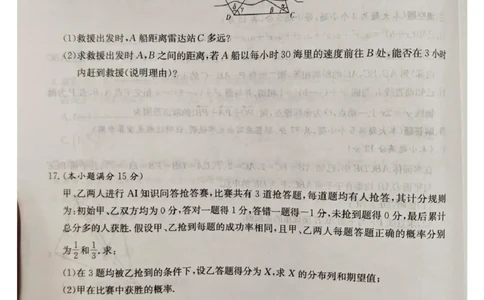 D C
(1)救援出发时,A船距离雷达站C多远?
(2)求救援出发时A,B之间的距离,若A船以每小时30海里的速度前往B处,能否在3小时
内赶到救援(说明理由)?
17.(本小题满分15分)
甲、乙两人进行AI知识问答抢答赛,比赛共有3道抢答题,每道题均有人抢答,其计分规则
为:初始甲、乙双方均为0分,答对一题得1分,答错一题得-1分,未抢到题得0分,最后累计
总分多的人获胜.假设甲、乙抢到每题的成功率相同,且甲、乙两人每题答题正确的概率分别
为1/2和1/3.求:
(1)在3题均被乙抢到的条件下,设乙答题得分为X,求X的分布列和期望值;
(2)甲在比赛中获胜的概率.